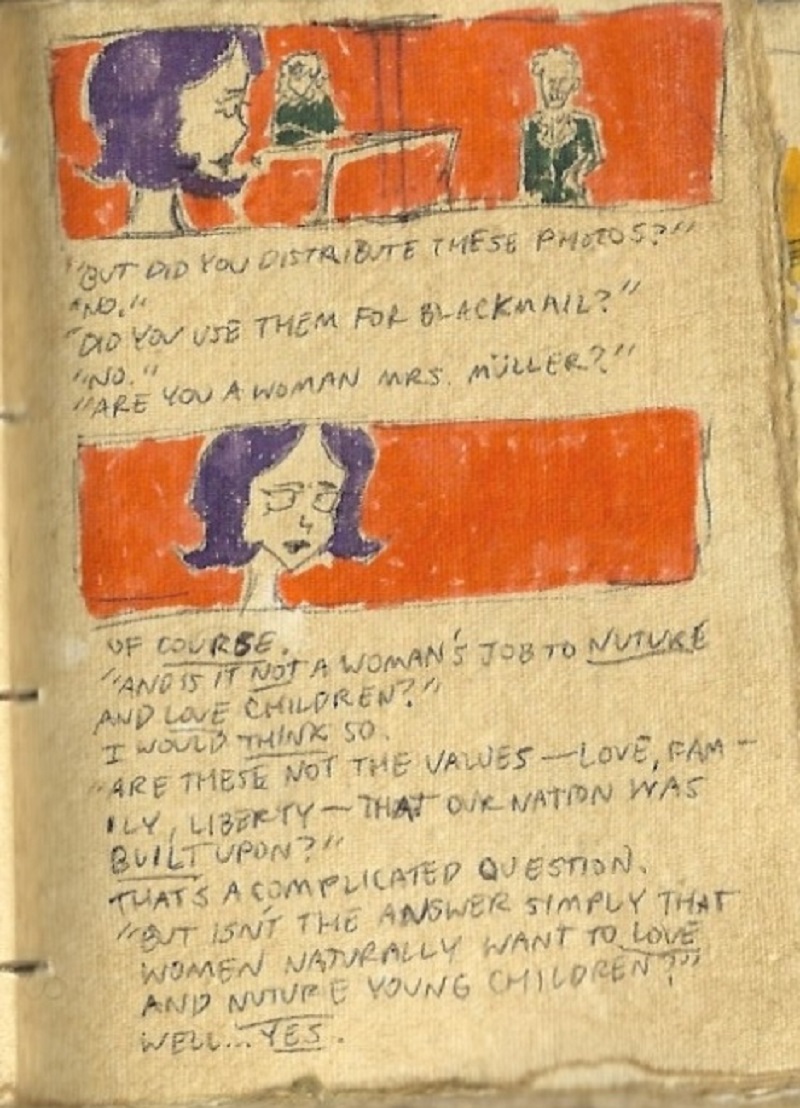 "BUT DID YOU DISTRIBUTE THESE PHOTOS?"
"NO."
"DID YOU USE THEM FOR BLACKMAIL?"
"NO."
"ARE YOU A WOMAN MRS. MÜLLER?"
OF COURSE.
"AND IS IT NOT A WOMAN'S JOB TO NUTURE
AND LOVE CHILDREN?"
I WOULD THINK SO.
"ARE THESE NOT THE VALUES — LOVE, FAM-
ILY, LIBERTY — THAT OUR NATION WAS
BUILT UPON?"
THAT'S A COMPLICATED QUESTION.
"BUT ISN'T THE ANSWER SIMPLY THAT
WOMEN NATURALLY WANT TO LOVE
AND NUTURE YOUNG CHILDREN?"
WELL... YES.